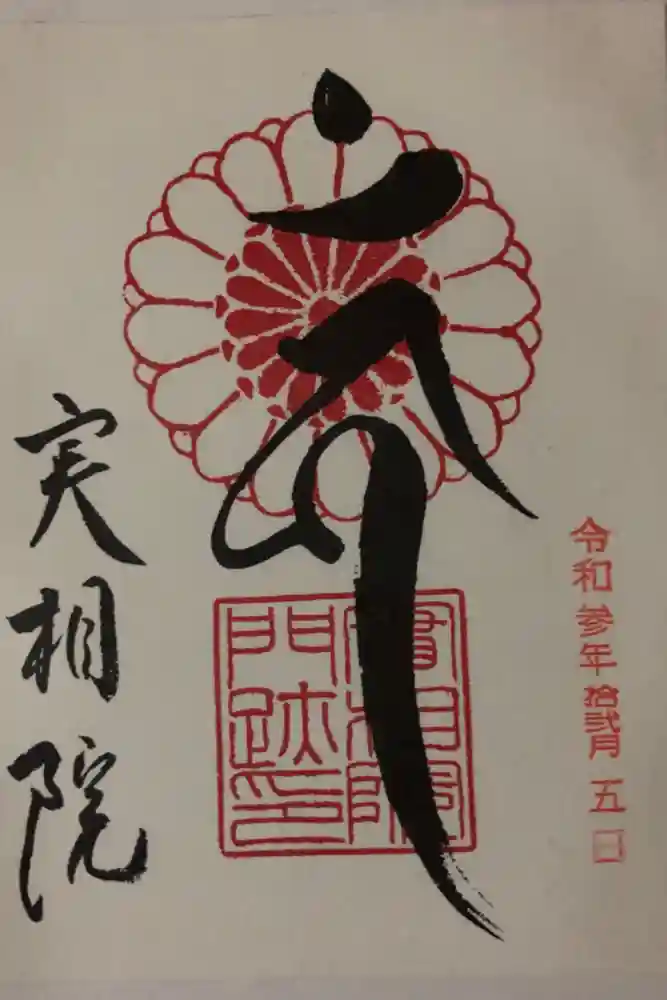 令和参年拾弐月五日
實相院
門跡印
実相院